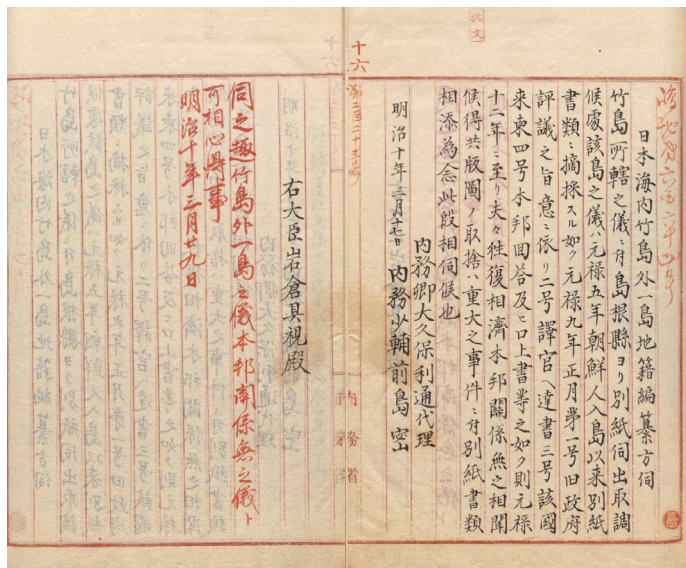 日本海内竹島外一島地籍編纂方伺
竹島所轄之儀ニ付島根縣ヨリ別紙伺出取調
候處該島之儀ハ元禄五年朝鮮人入島以来別紙
書類ニ摘採スル如ク元禄九年正月第一号旧政府
評議之旨意ニ依リ二号譯官ヘ達書三号該國
来柬四号本邦回答及ヒ口上書等之如ク則元禄
十二年ニ至リ夫々徃復相濟本邦關係無之相聞
候得共版圖ノ取捨ハ重大之事件ニ付別紙書類
相添為念此段相伺候也
内務卿大久保利通代理
明治十年三月十七日 内務少輔前島密
右大臣岩倉具視殿
伺之趣竹島外一島之儀本邦関係無之儀ト
可相心得事
明治十年三月廿九日
十六
内務省